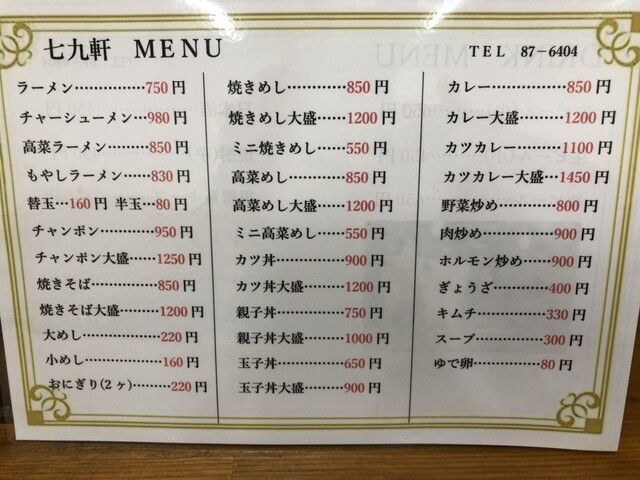 七九軒 MENU
TEL 87-6404
ラーメン……………750円
チャーシューメン…980円
高菜ラーメン………850円
もやしラーメン……830円
替玉…160円 半玉…80円
チャンポン…………950円
チャンポン大盛……1250円
焼きそば……………850円
焼きそば大盛………1200円
大めし………………220円
小めし………………160円
おにぎり(2ヶ)………220円
焼きめし……………850円
焼きめし大盛………1200円
ミニ焼きめし………550円
高菜めし……………850円
高菜めし大盛………1200円
ミニ高菜めし………550円
カツ丼………………900円
カツ丼大盛…………1200円
親子丼………………750円
親子丼大盛…………1000円
玉子丼………………650円
玉子丼大盛…………900円
カレー………………850円
カレー大盛…………1200円
カツカレー…………1100円
カツカレー大盛…1450円
野菜炒め……………800円
肉炒め………………900円
ホルモン炒め………900円
ぎょうざ……………400円
キムチ………………330円
スープ………………300円
ゆで卵………………80円